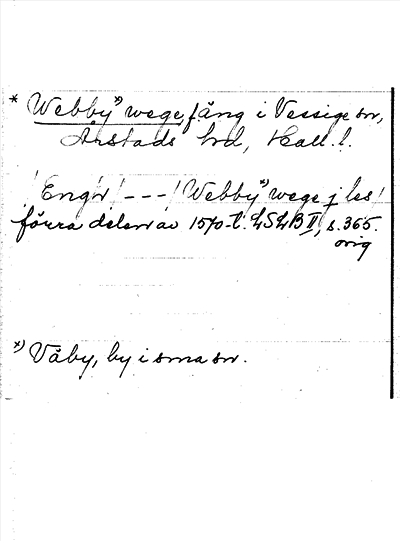 * Webby*) wege, fäng i Vessige sn,
Årstads hd, Hall. l.
/Engr/ --- / Webby*) wege j les/
förra delen av 1570-t. LSLB II, s. 365.
orig
*) Väby, by i sma sn.